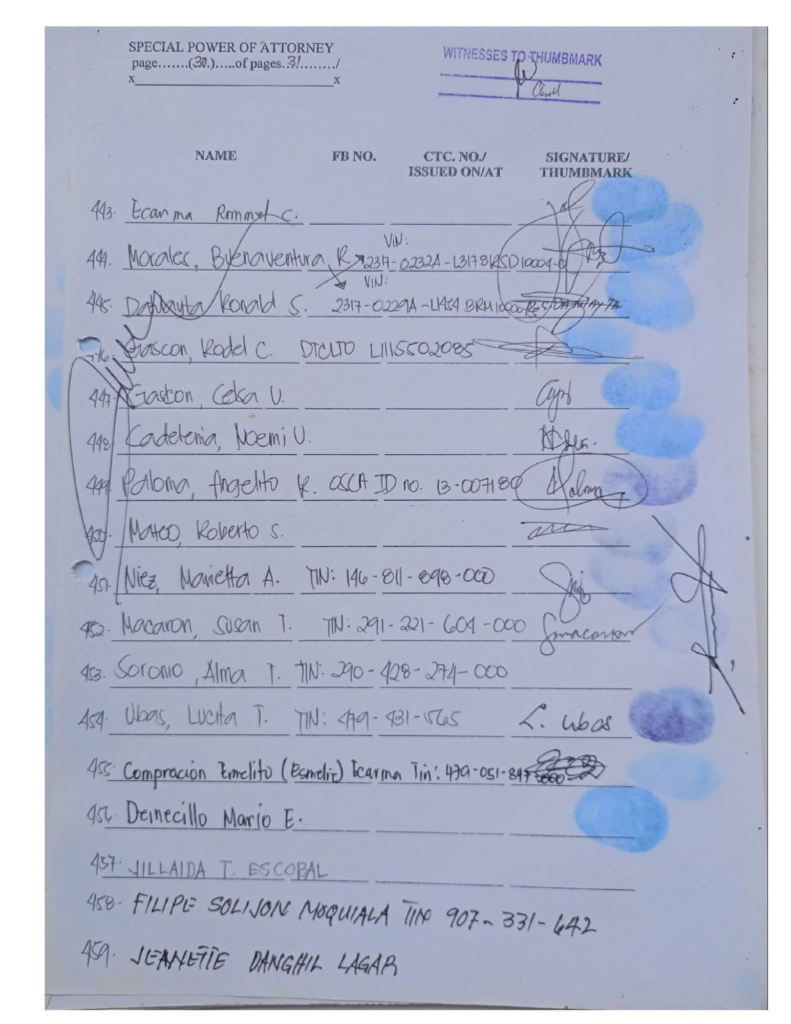 SPECIAL POWER OF ATTORNEY
page.......(30.).....of pages.31......../
x x
WITNESSES TO THUMBMARK
NAME FB NO. CTC. NO./ SIGNATURE/
ISSUED ON/AT THUMBMARK
443. Ecarma Rommel C.
VIN:
444. Morales, Buenaventura R.
VIN:
445. Ronald S.
Gascon, Rodel C. DTCLTO L1115502085
447. Gaston, Celsa U.
448. Cadeleria, Noemi U.
449. Paloma, Angelito R. OSCA ID no. 13-007180
450. Mateo, Roberto S.
451. Niez, Marietta A. TIN: 146-811-898-000
452. Macaron, Susan T. TIN: 291-221-604-000 Smacaron
453. Soronio, Alma T. TIN: 290-428-274-000
454. Ubas, Lucita T. TIN: 479-431-1565 L. Ubas
455. Compracion Ermelito (Esmelir) Ecarma Tin: 479-051-847-000
456. Deinecillo Mario E.
457. JILLAIDA T. ESCOBAL
458. FILIPE SOLIJON MOQUIALA TIN 907-331-642
459. JEANETTE DANGHIL LAGAR